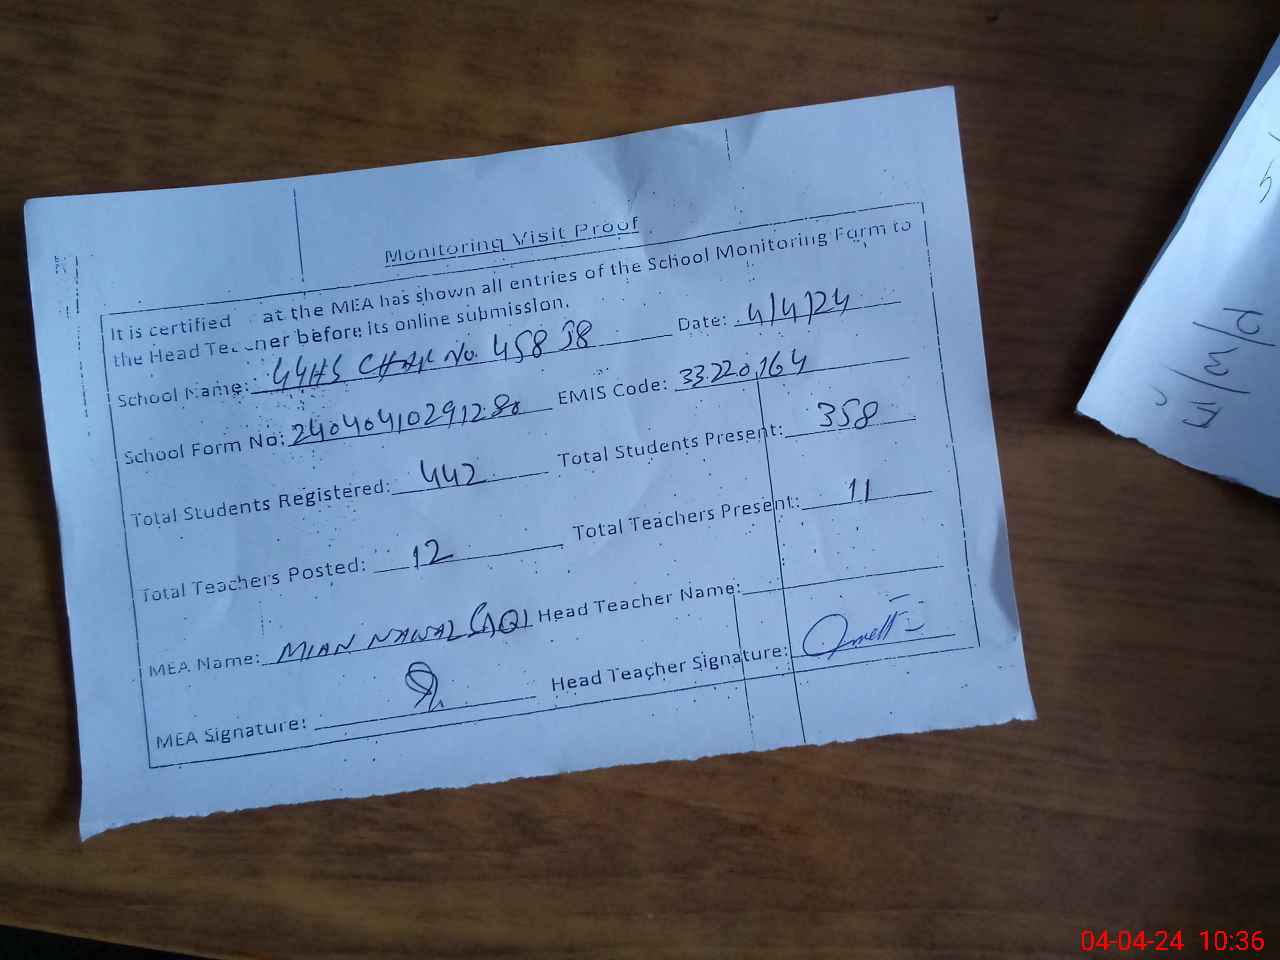 Monitoring Visit Proof
It is certified at the MEA has shown all entries of the School Monitoring Form to
the Head Teacher before its online submission.
School Name: GGHS CHAK No. 458 JB Date: 4/4/24
School Form No: 24040410291280 EMIS Code: 33220164
Total Students Registered: 442 Total Students Present: 358
Total Teachers Posted: 12 Total Teachers Present: 11
MEA Name: MIAN NAWAZ Head Teacher Name:
MEA Signature: Head Teacher Signature:
04-04-24 10:36